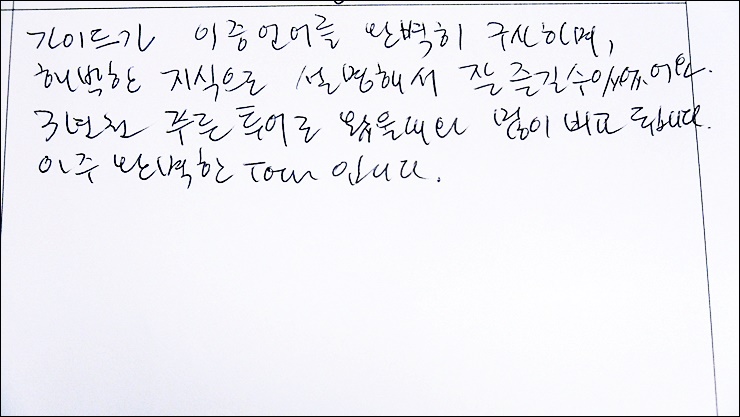 가이드가 이중언어를 완벽히 구사하며,
해박한 지식으로 설명해서 잘 즐길수 있었어요.
3년전 푸른투어로 왔을때와 많이 비교 됩니다.
아주 완벽한 Tour 입니다.